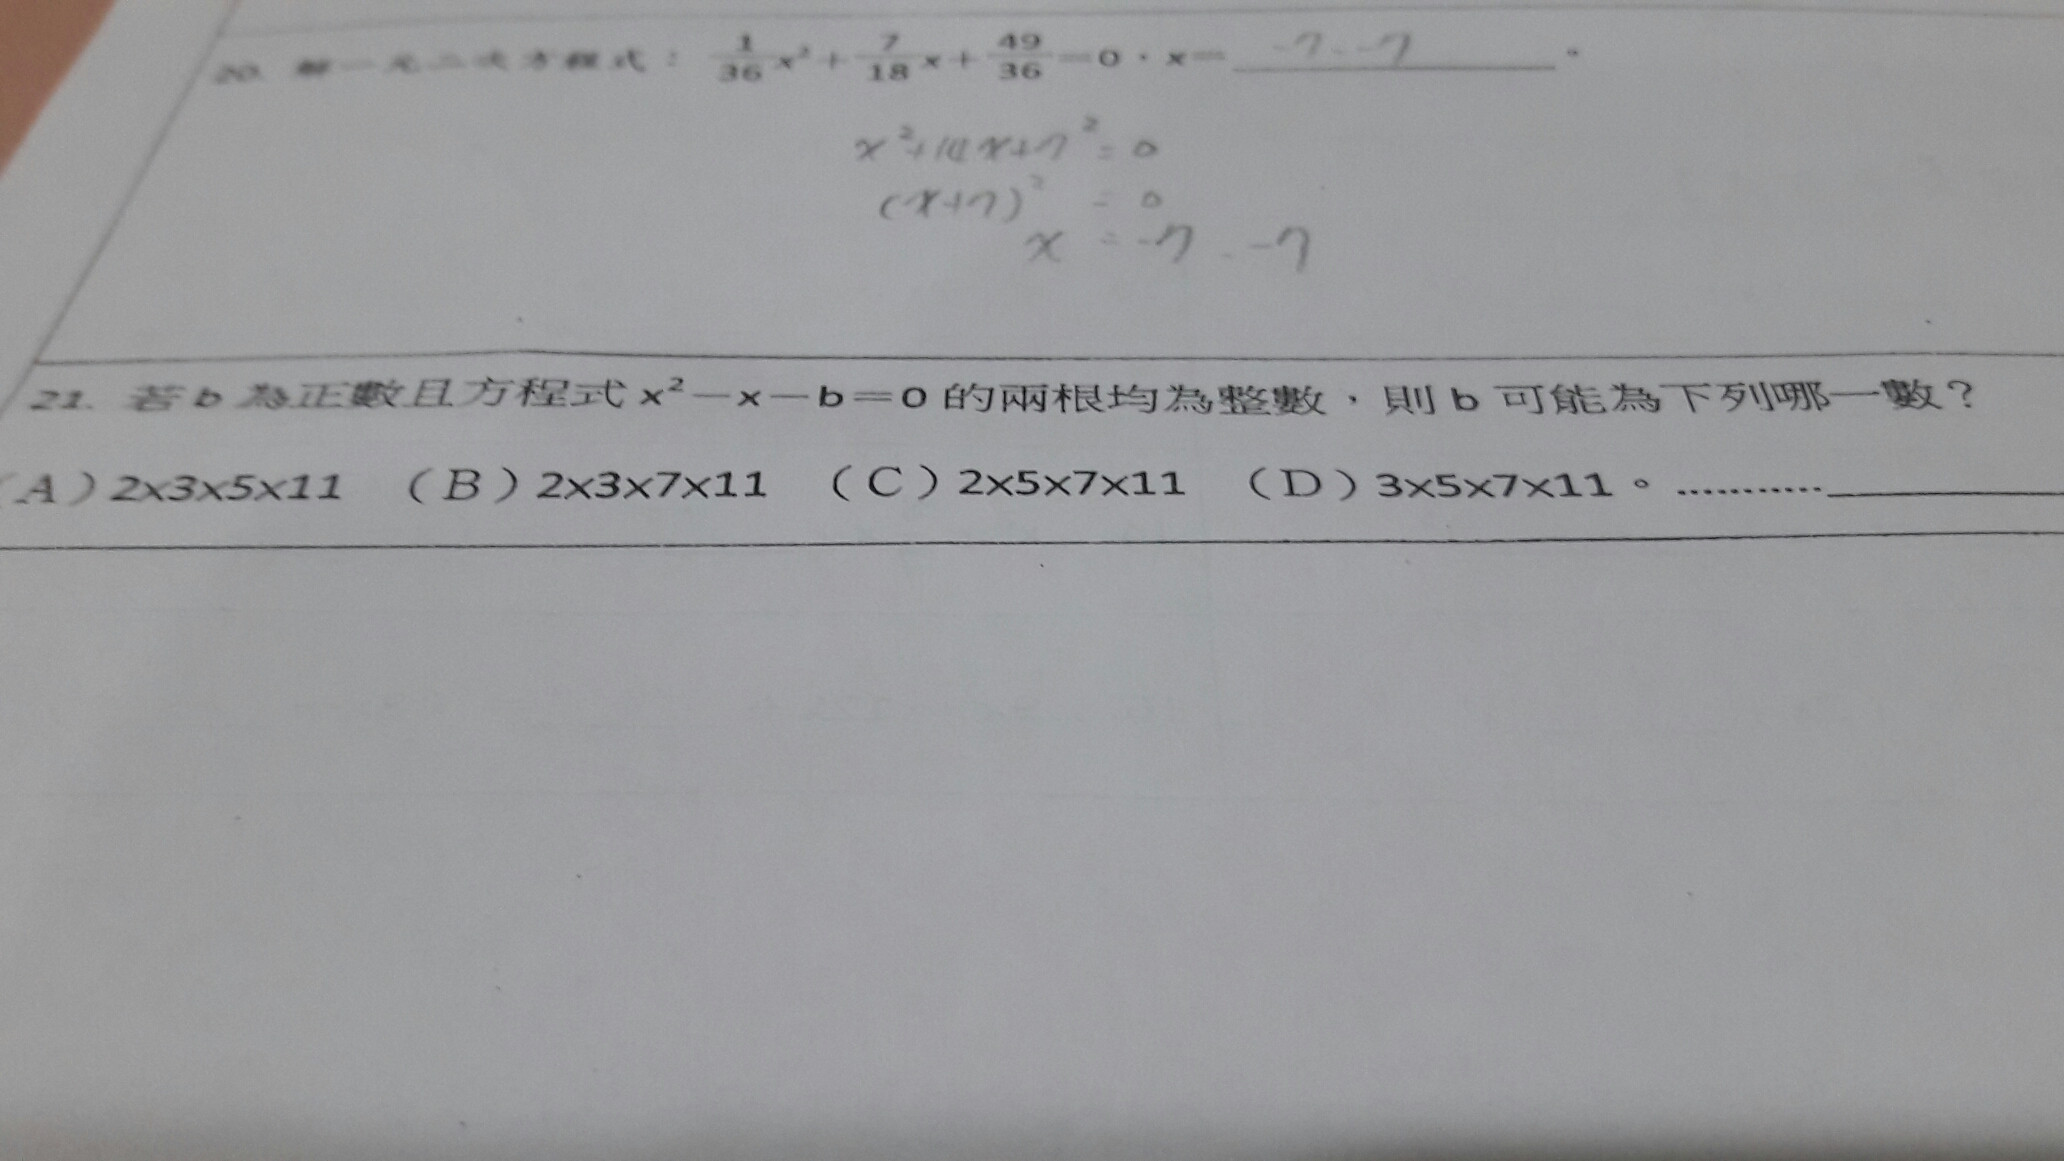 20. 解一元二次方程式：1/36 x²+7/18 x+49/36=0，x= -7、-7。
x²+14x+7²=0
(x+7)²=0
x=-7、-7
21. 若b為正數且方程式x²－x－b=0的兩根均為整數，則b可能為下列哪一數？
(A) 2x3x5x11 (B) 2x3x7x11 (C) 2x5x7x11 (D) 3x5x7x11。...........